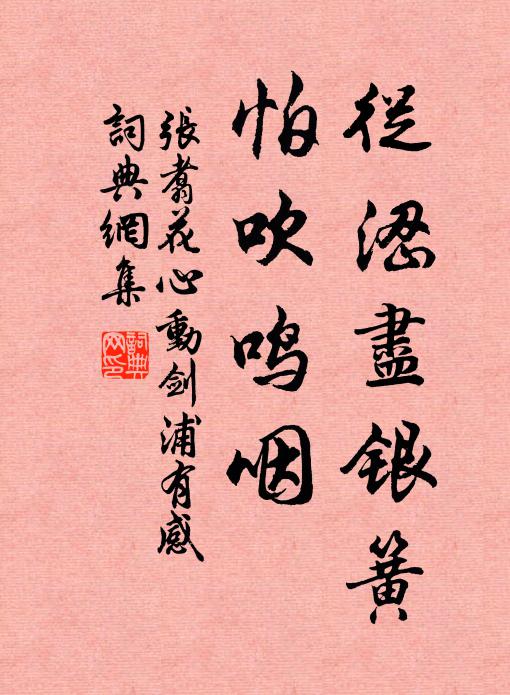 從澀盡銀簧
怕吹嗚咽
張翥花心動劍浦有感
詞典網集
詞典网印